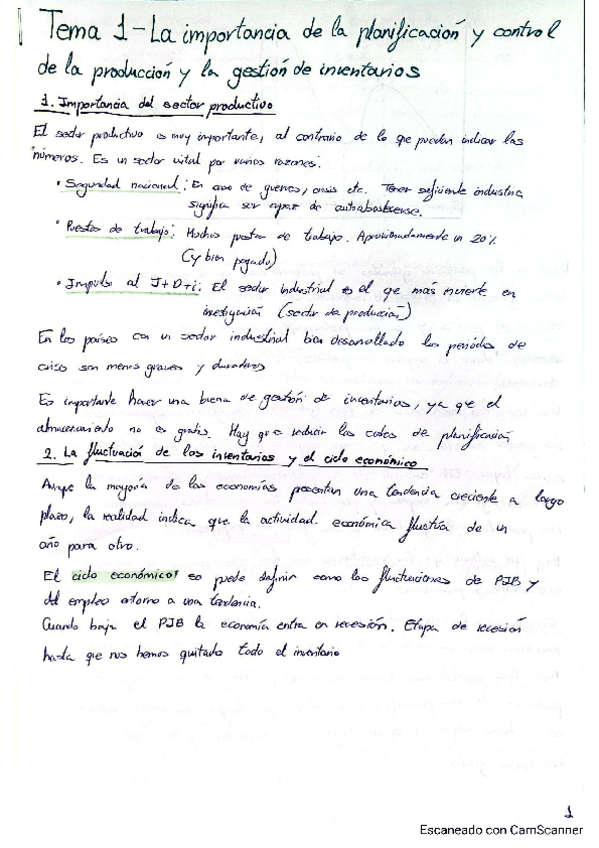 Tema 1 - La importancia de la planificación y control
de la producción y la gestión de inventarios
1. Importancia del sector productivo
El sector productivo es muy importante, al contrario de lo que puedan indicar los
números. Es un sector vital por varias razones:
• Seguridad nacional: En caso de guerras, crisis etc. Tener suficiente industria
significa ser capaz de autoabastecerse.
• Puestos de trabajo: Muchos puestos de trabajo. Aproximadamente un 20%
(y bien pagado)
• Impulso al I+D+i: El sector industrial es el que más invierte en
investigación (sector de producción)
En los países con un sector industrial bien desarrollado los periodos de
crisis son menos graves y duraderos
Es importante hacer una buena de gestión de inventarios, ya que el
almacenamiento no es gratis. Hay que reducir los costes de planificación
2. La fluctuación de los inventarios y el ciclo económico
Aunque la mayoría de las economías presentan una tendencia creciente a largo
plazo, la realidad indica que la actividad. económica fluctúa de un
año para otro.
El ciclo económico se puede definir como las fluctuaciones de PIB y
del empleo entorno a una tendencia.
Cuando baja el PIB la economía entra en recesión. Etapa de recesión
hasta que nos hemos quitado todo el inventario
1
Escaneado con CamScanner